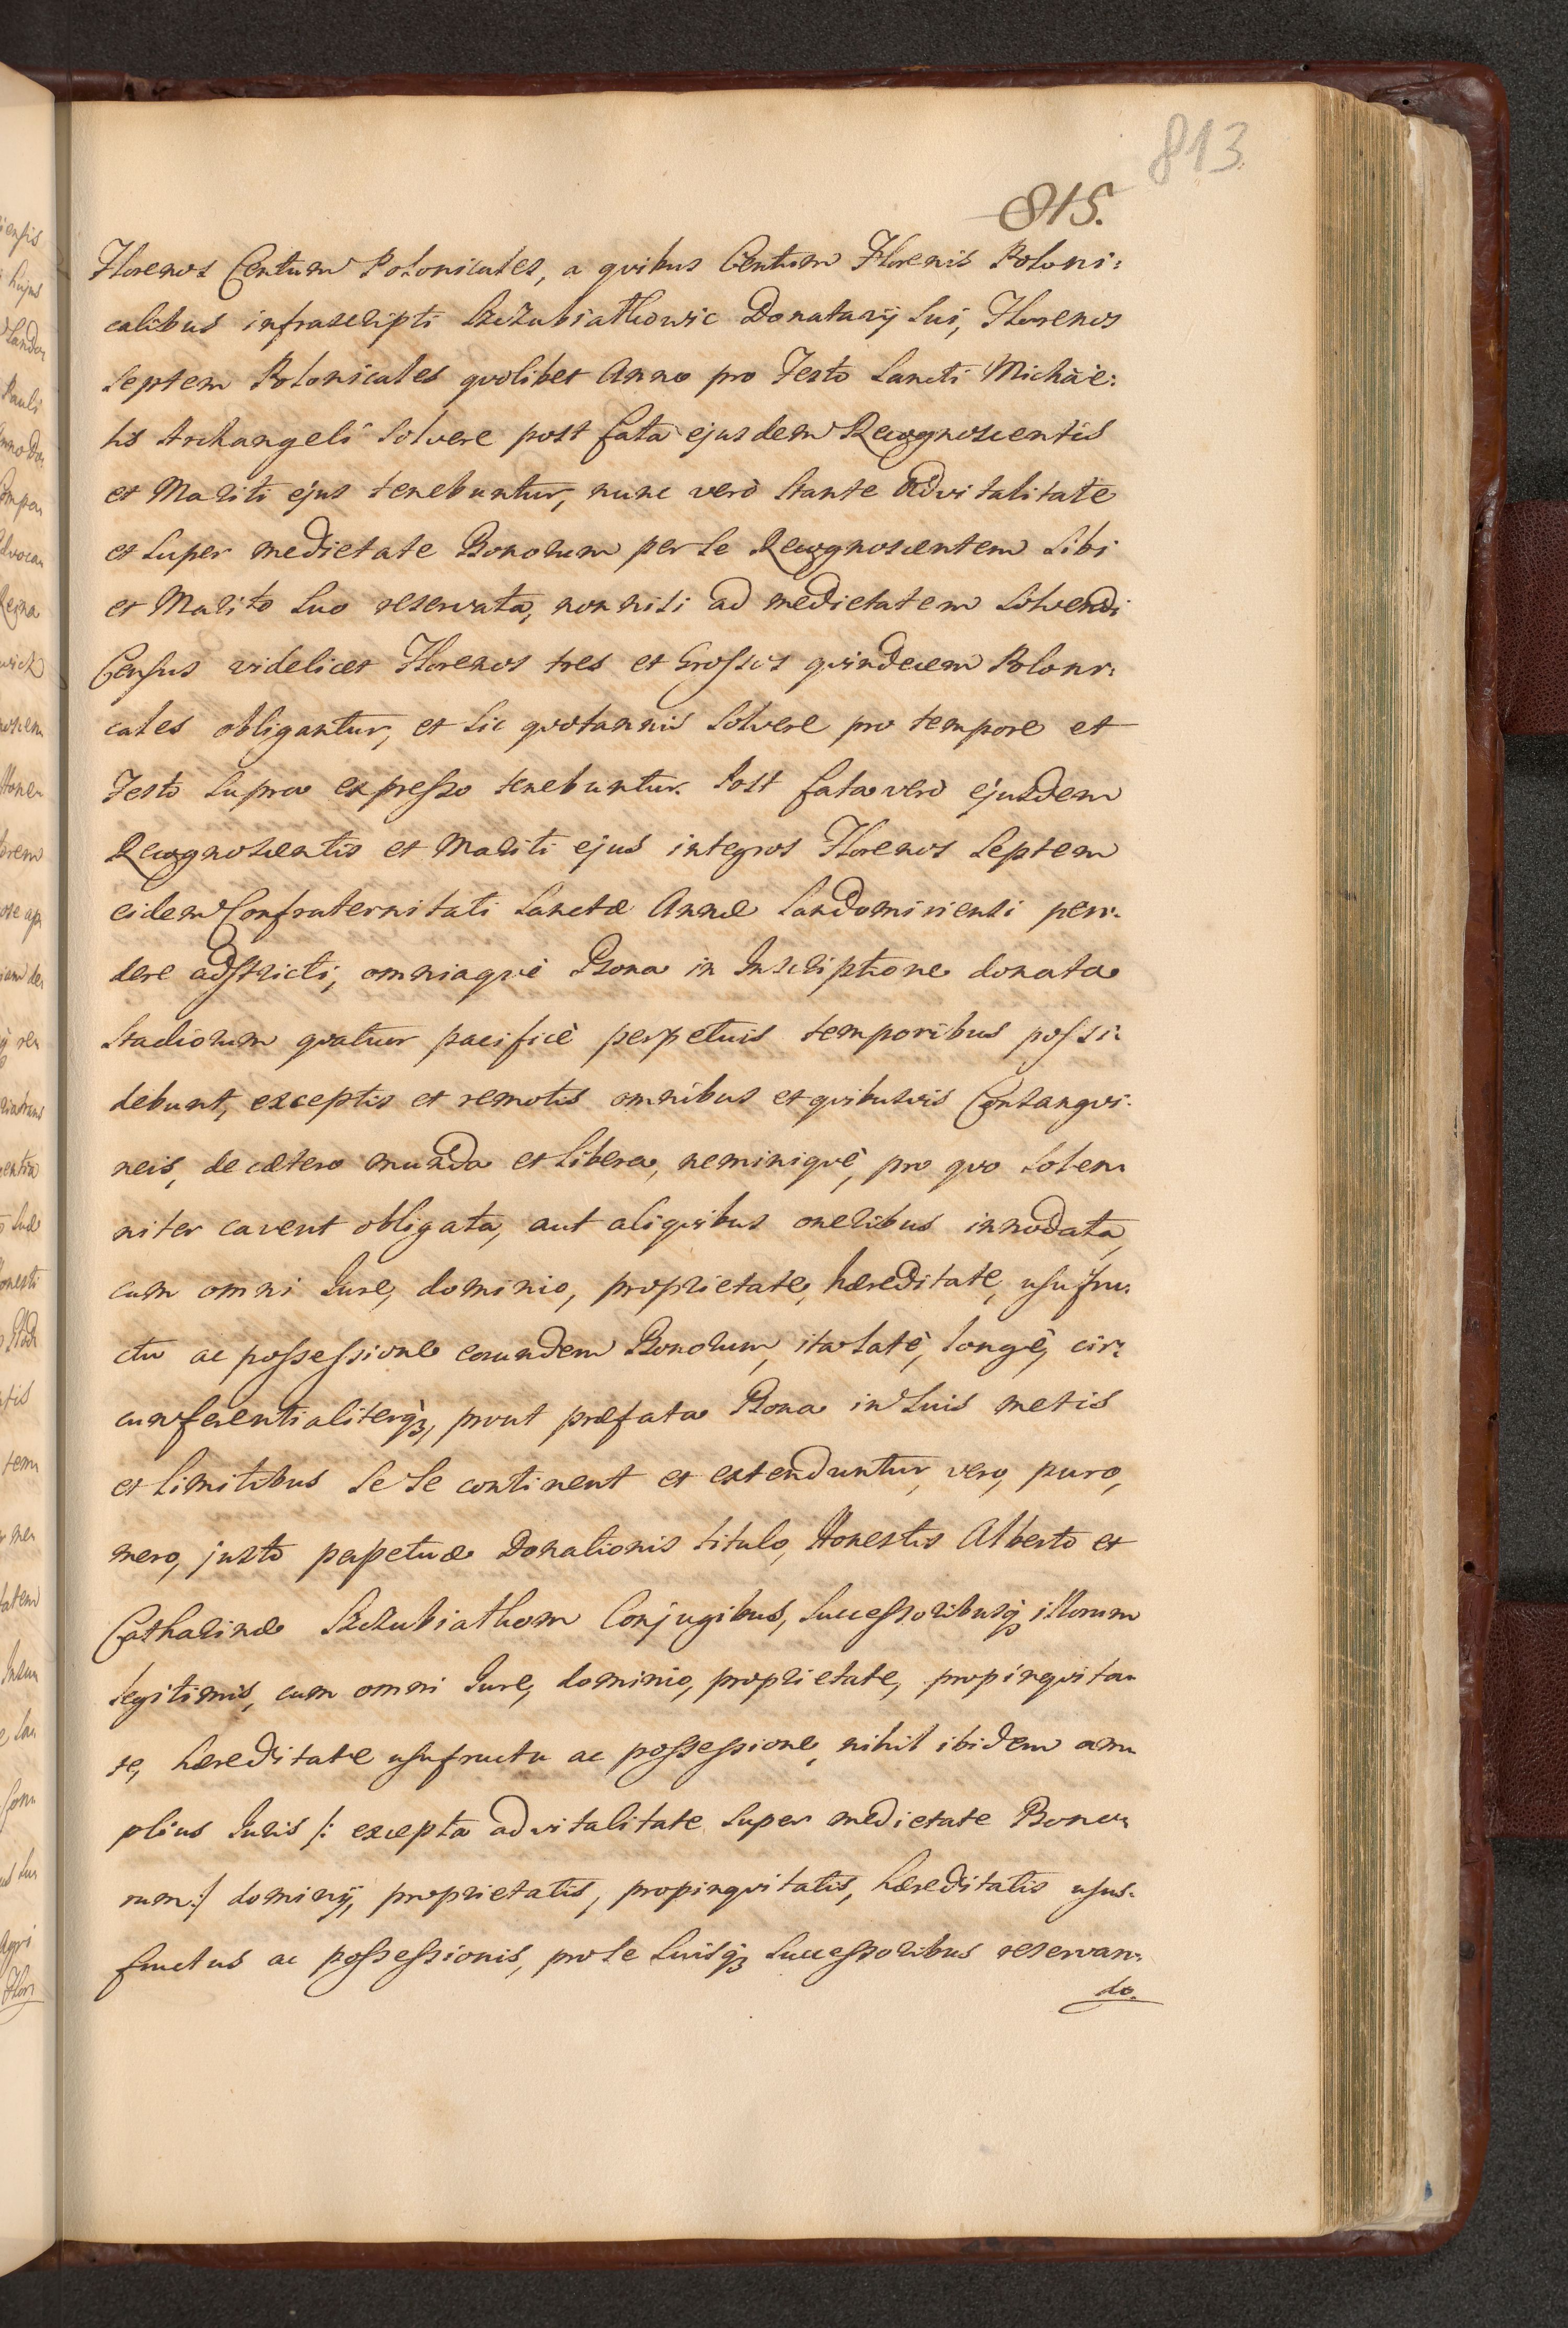 813
815.
Florenos Centum Polonicales, a quibus Centum Florenis Poloni:
calibus infrascripti Szczubiałkowic Donatarij Sui, Florenos
Septem Polonicales quolibet Anno pro Festo Sancti Michàe:
lis Archangeli solvere post fata ejusdem Recognoscentis
et Mariti ejus tenebuntur, nunc verò stante Advitalitate
et super medietate Bonorum per se Recognoscentem Sibi
et Marito Suo reservata, non nisi ad medietatem solvendi
Census videlicet Florenos tres et Grossos quindecem Poloni:
cales obligantur, et sic quotannis solvere pro tempore et
Festo supra expresso tenebuntur. Post fata verò ejusdem
Recognoscentis et Mariti ejus integros Florenos Septem
eidem Confraternitati Sanctæ Annæ Sandomiriensi pen:
dere adstricti, omniaquè Bona in Inscriptione donata
Stadiorum quatuor pacificè perpetuis temporibus possi:
debunt, exceptis et remotis omnibus et quibusvis Consangvi:
neis, de cætero munda et libera, neminiquè, pro quo solem
niter cavent obligata, aut aliquibus oneribus innodata,
cum omni Jure, dominio, proprietate, hæreditate, usufru:
ctu ac possessione eorundem Bonorum, ita latè, longè, cir:
cumferentialiterq3, prout præfata Bona in suis metis
et limitibus se se continent et extenduntur, vero, puro,
mero, justo perpetuæ Donationis titulo, Honestis Alberto et
Catharinæ Szczubiałkom Conjugibus, Successoribusq3 illorum
legitimis, cum omni Jure, dominio, proprietate, propinquita
te, hæreditate usufructu ac possessione, nihil ibidem am
plius Juris /: excepta advitalitate super medietate Bono
rum :/ dominij, proprietatis, propinquitatis, hæreditatis usus:
fructus ac possessionis, pro se suisq3 Successoribus reservan:
do.